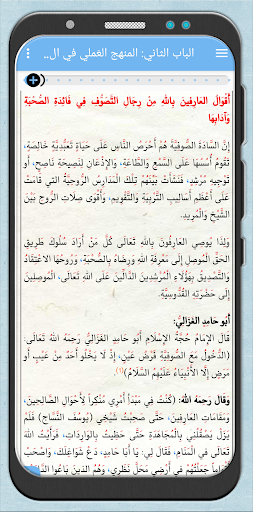 الباب الثاني: المنهج العملي في ال..
أَقْوَالُ العَارِفِينَ بِاللهِ مِنْ رِجَالِ التَّصَوُّفِ في فَائِدَةِ الصُّحْبَةِ
وَآدَابِهَا
إِنَّ السَّادَةَ الصُّوفِيَّةَ هُمْ أَحْرَصُ النَّاسِ عَلَى حَيَاةٍ تَعَبُّدِيَّةٍ خَالِصَةٍ،
تَقُومُ أُسُسُهَا عَلَى السَّمْعِ وَالطَّاعَةِ، وَالإِذْعَانِ لِنَصِيحَةِ نَاصِحٍ، أَو
تَوْجِيهِ مُرْشِدٍ، فَنَشَأَتْ بَيْنَهُمْ تِلْكَ المَدَارِسُ الرُّوحِيَّةُ التي قَامَتْ
عَلَى أَعْظَمِ أَسَالِيبِ التَّرْبِيَةِ وَالتَّقْوِيمِ، وَأَقْوَى صِلَاتِ الرُّوحِ بَيْنَ
الشَّيْخِ وَالمُرِيدِ.
وَلِذَا يُوصِي العَارِفُونَ بِاللهِ تَعَالَى كُلَّ مَنْ أَرَادَ سُلُوكَ طَرِيقِ
الحَقِّ المُوصِلِ إلى مَعْرِفَةِ اللهِ وَرِضَاهُ بِالصُّحْبَةِ، وَرُوحُهَا الاعْتِقَادُ
وَالتَّصْدِيقُ بِهَؤُلَاءِ المُرْشِدِينَ الدَّالِّينَ عَلَى اللهِ تَعَالَى، المُوصِلِينَ
إلى حَضْرَتِهِ القُدُّوسِيَّةِ.
أَبُو حَامِدٍ الغَزَالِيُّ:
قَالَ الإِمَامُ حُجَّةُ الإِسْلَامِ أَبُو حَامِدٍ الغَزَالِيُّ رَحِمَهُ اللهُ تَعَالَى:
(الدُّخُولُ مَعَ الصُّوفِيَّةِ فَرْضُ عَيْنٍ، إِذْ لَا يَخْلُو أَحَدٌ مِنْ عَيْبٍ أَو
مَرَضٍ إِلَّا الأَنْبِيَاءَ عَلَيْهِمُ السَّلَامُ)(١)
وَقَالَ رَحِمَهُ اللهُ: (كُنْتُ في مَبْدَأِ أَمْرِي مُنْكِرًا لِأَحْوَالِ الصَّالِحِينَ،
وَمَقَامَاتِ العَارِفِينَ، حَتَّى صَحِبْتُ شَيْخِي (يُوسُفَ النَّسَّاجَ) فَلَمْ
يَزَلْ يَصْقُلُنِي بِالمُجَاهَدَةِ حَتَّى حَظِيتُ بِالوَارِدَاتِ، فَرَأَيْتُ اللهَ
تَعَالَى في المَنَامِ، فَقَالَ لِي: يَا أَبَا حَامِدٍ، دَعْ شَوَاغِلَكَ، وَاصْحَبْ
أَقْوَامًا جَعَلْتُهُمْ في أَرْضِي مَحَلَّ نَظَرِي، وَهُمُ الذينَ بَاعُوا الدَّارَيْنِ